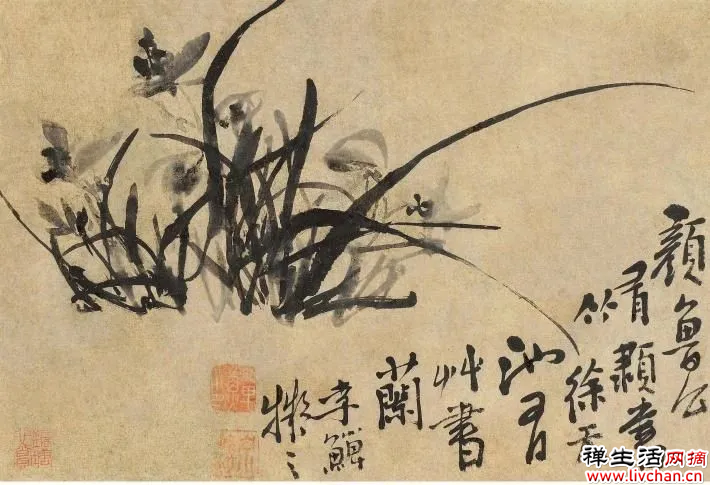 顏魯公
有書
竹徐天
池有
艸書
蘭
李鱓
擬之
禅生活网摘
www.livchan.cn